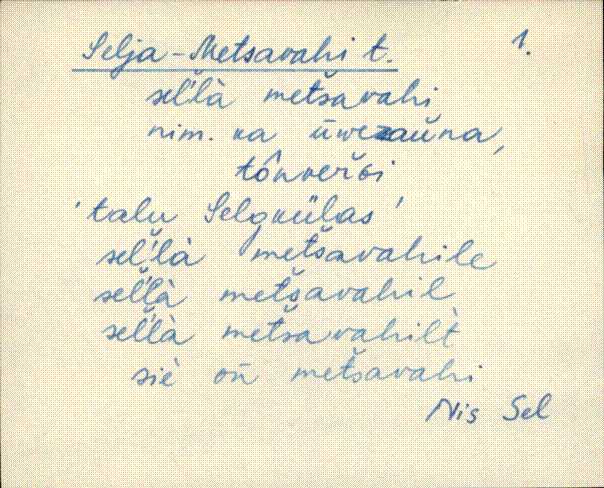 Selja-Metsavahi t. 1.
sel̆'l̀à metšavahi
nim. ka ūwezaŭna,
tônverbi
'talu Selgkülas'
sel̆'l̀à metšavahile
sel̆'l̀à metšavahil
sel̆'l̀à metšavahilt
siè on̆ metšavahi
Nis Sel